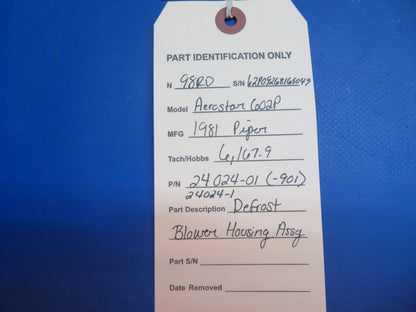 PART IDENTIFICATION ONLY
N 98RD S/N 62P09268165045
Model Aerostar 602P
MFG 1981 Piper
Tach/Hobbs 6,167.9
P/N 24024-01 (-901)
24024-1
Part Description Defrost
Blower Housing Assy
Part S/N
Date Removed